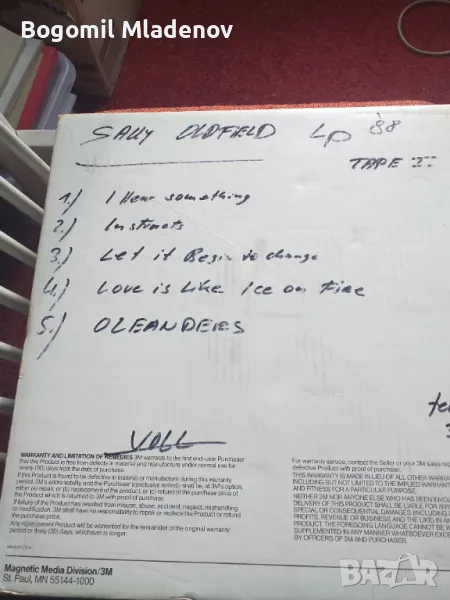 Bogomil Mladenov
SALLY OLDFIELD LP '88
TAPE II
1.) I Hear something
2.) Instincts
3.) Let it Begin to change
4.) Love is Like Ice on Fire
5.) OLEANDERS
WARRANTY AND LIMITATION OF REMEDIES 3M warrants to the first end-user Purchaser
that this Product is free from defects in material and manufacture under normal use for
ninety (90) days from the date of purchase.
If this Product is found to be defective in material or manufacture during this warranty
period, 3M's entire liability, and the Purchaser's exclusive remedy shall be, at 3M's option,
either (a) repair, or (b) replacement of the product, or (c) refund of the purchase price of
the Product which is returned to 3M with proof of purchase.
If failure of this Product has resulted from misuse, abuse, accident, neglect, mishandling
or modification, 3M shall have no responsibility to repair or replace the Product or refund
the purchase price.
Any replacement Product will be warranted for the remainder of the original warranty
period or thirty (30) days, whichever is longer.
Made in U.S.A.
For warranty service, contact the Seller or your 3M sales
defective Product with proof of purchase.
THIS WARRANTY IS MADE IN LIEU OF ALL OTHER WARRAN
INCLUDING BUT NOT LIMITED TO THE IMPLIED WARRANT
AND FITNESS FOR A PARTICULAR PURPOSE.
NEITHER 3M NOR ANYONE ELSE WHO HAS BEEN INVO
DELIVERY OF THIS PRODUCT SHALL BE LIABLE FOR ANY
SPECIAL OR CONSEQUENTIAL DAMAGES (INCLUDING
PROFITS, REVENUE OR BUSINESS AND THE LIKE) IN A
PRODUCT. THE FOREGOING LANGUAGE CANNOT BE
SUPPLEMENTED IN ANY MANNER WHATSOEVER EXC
BY OFFICERS OF 3M AND PURCHASER.
Magnetic Media Division/3M
St. Paul, MN 55144-1000
BAZAR